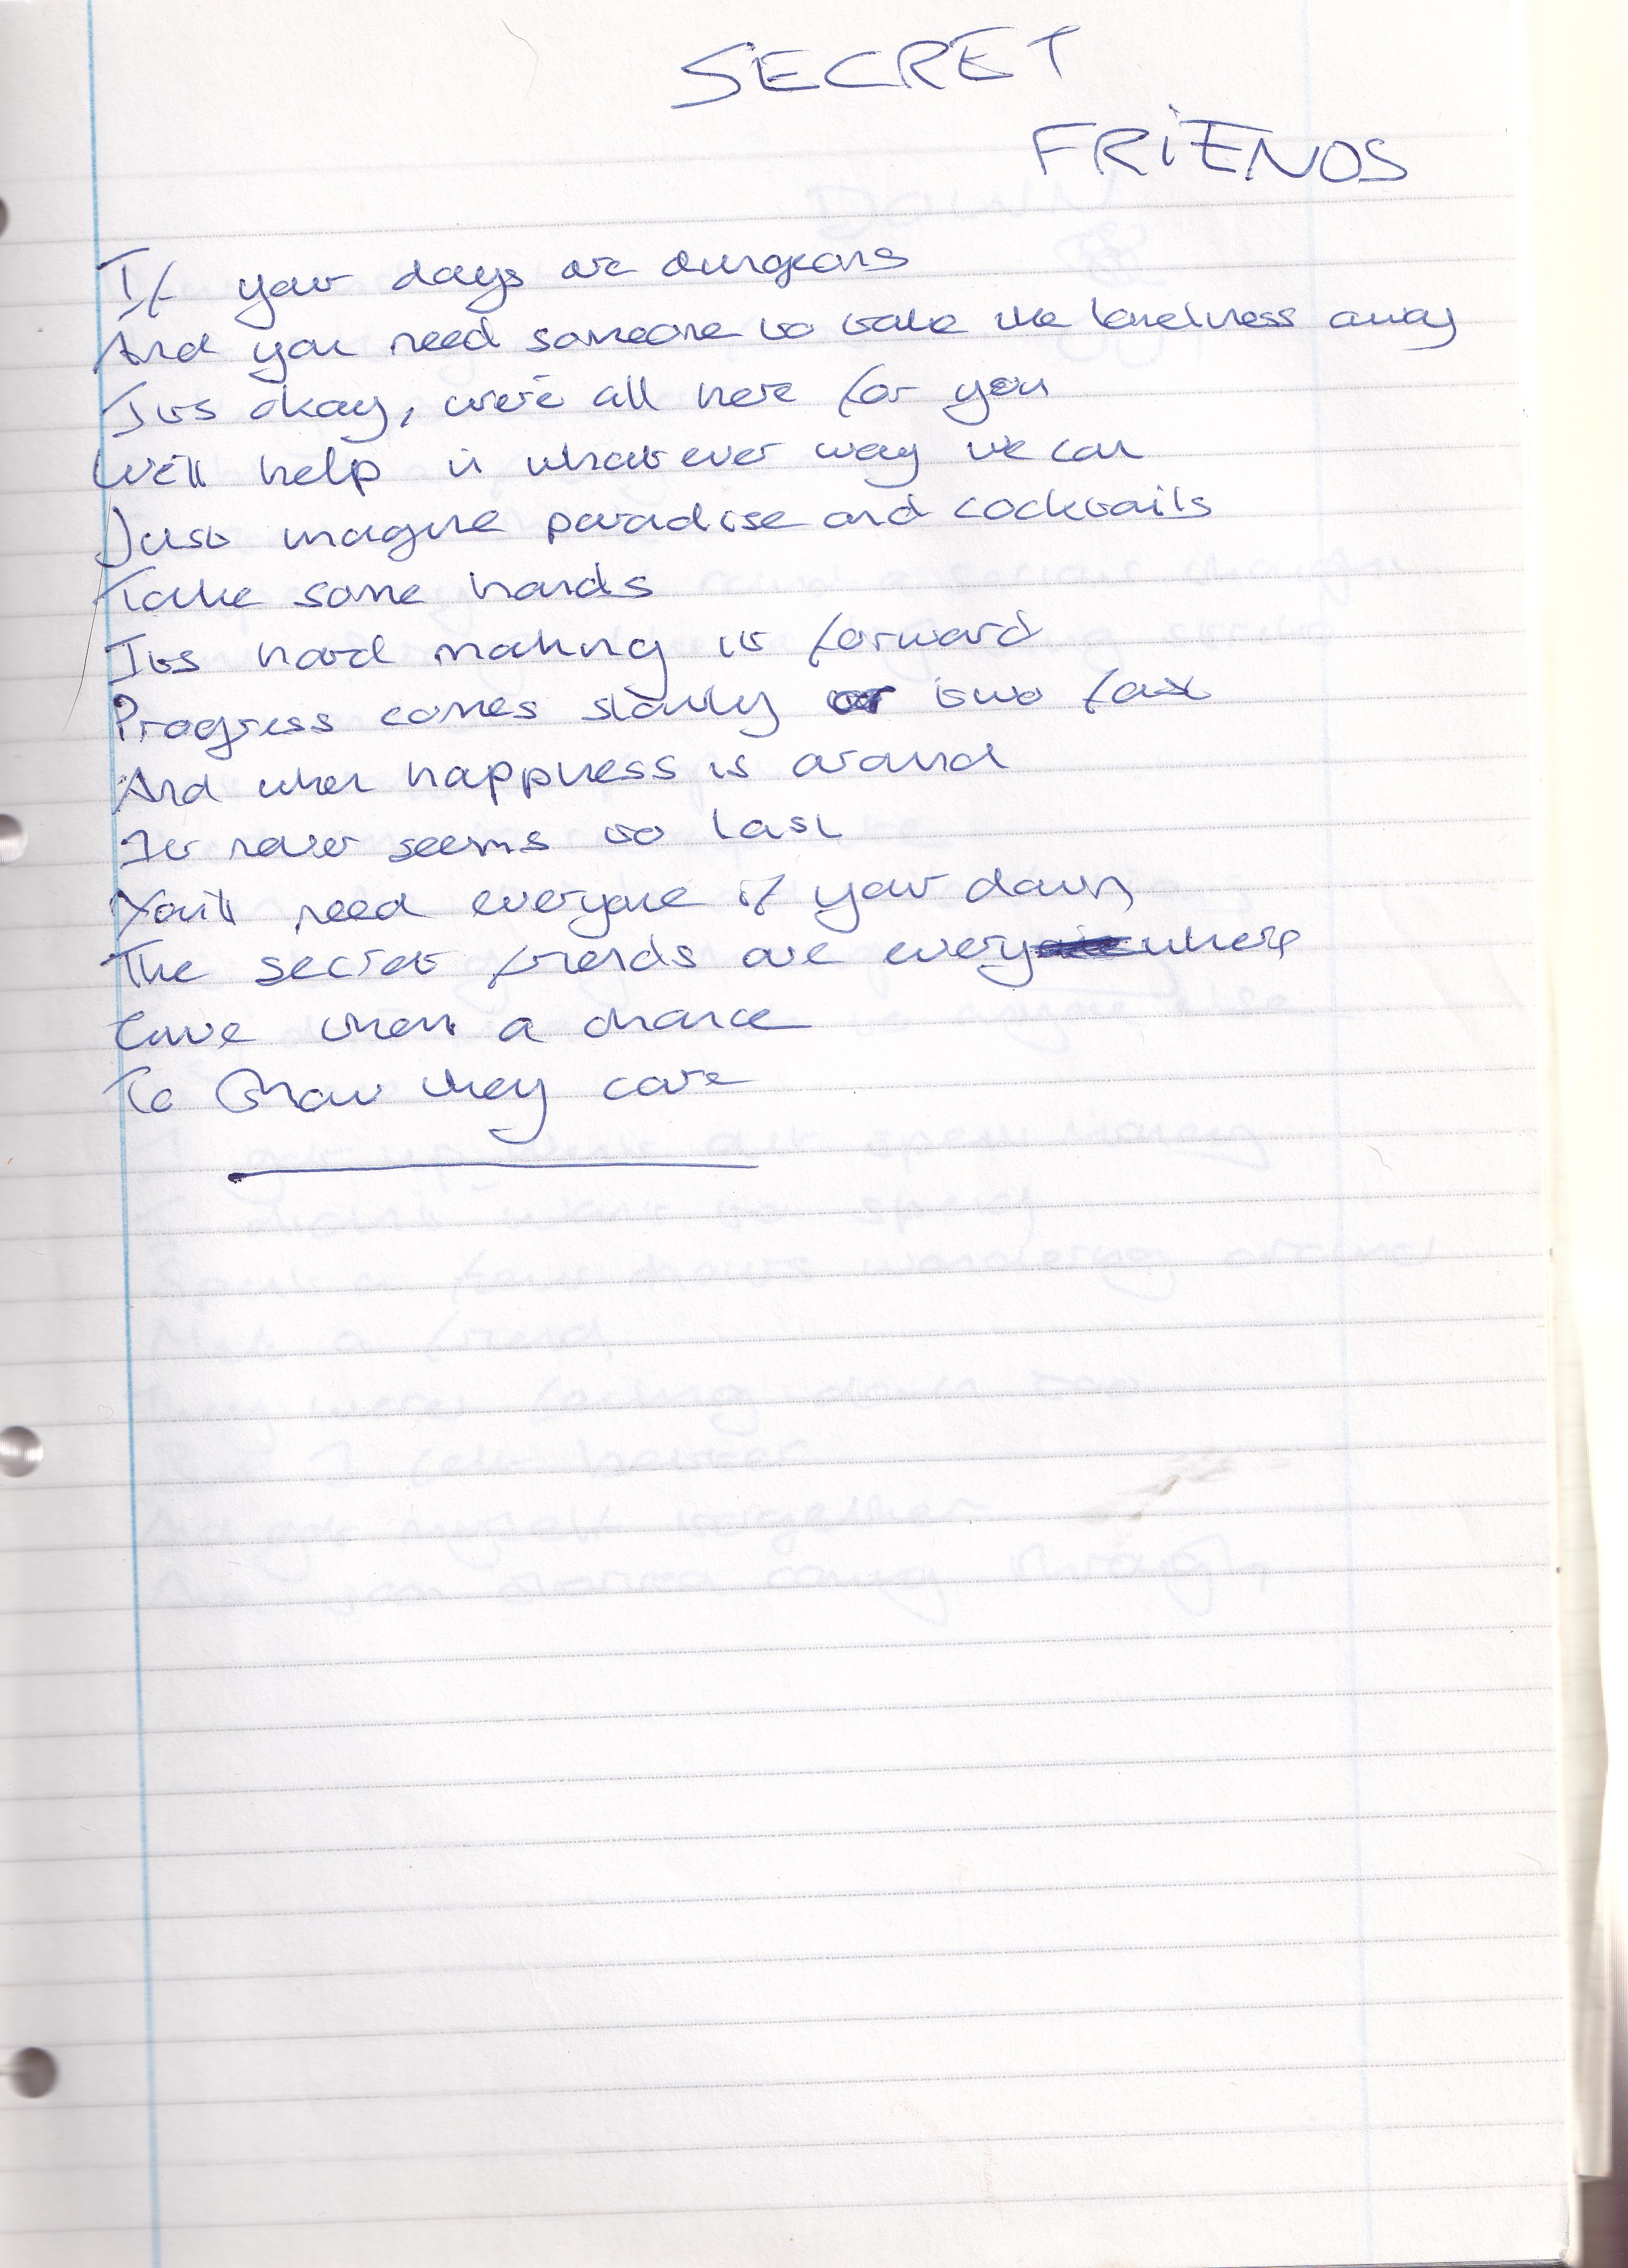 SECRET
FRiENDS
If your days are dungeons
And you need someone to take the loneliness away
Its okay, we're all here for you
We'll help in whatever way we can
Just imagine paradise and cocktails
Take some hands
Its hard making it forward
Progress comes slowly or two fast
And when happiness is around
It never seems to last
You'll need everyone if your down
The secret friends are everywhere
Give them a chance
To show they care